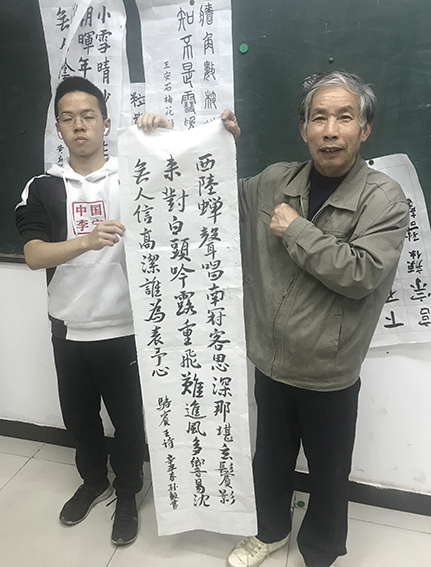 小雪晴沙
朝暉年
牆角數枝
知不是雪
王安石梅花
西陸蟬聲唱南冠客思深那堪玄鬢影
来對白頭吟露重飛難進風多響易沈
無人信高潔誰為表予心
駱賓王詩
中国
李宁